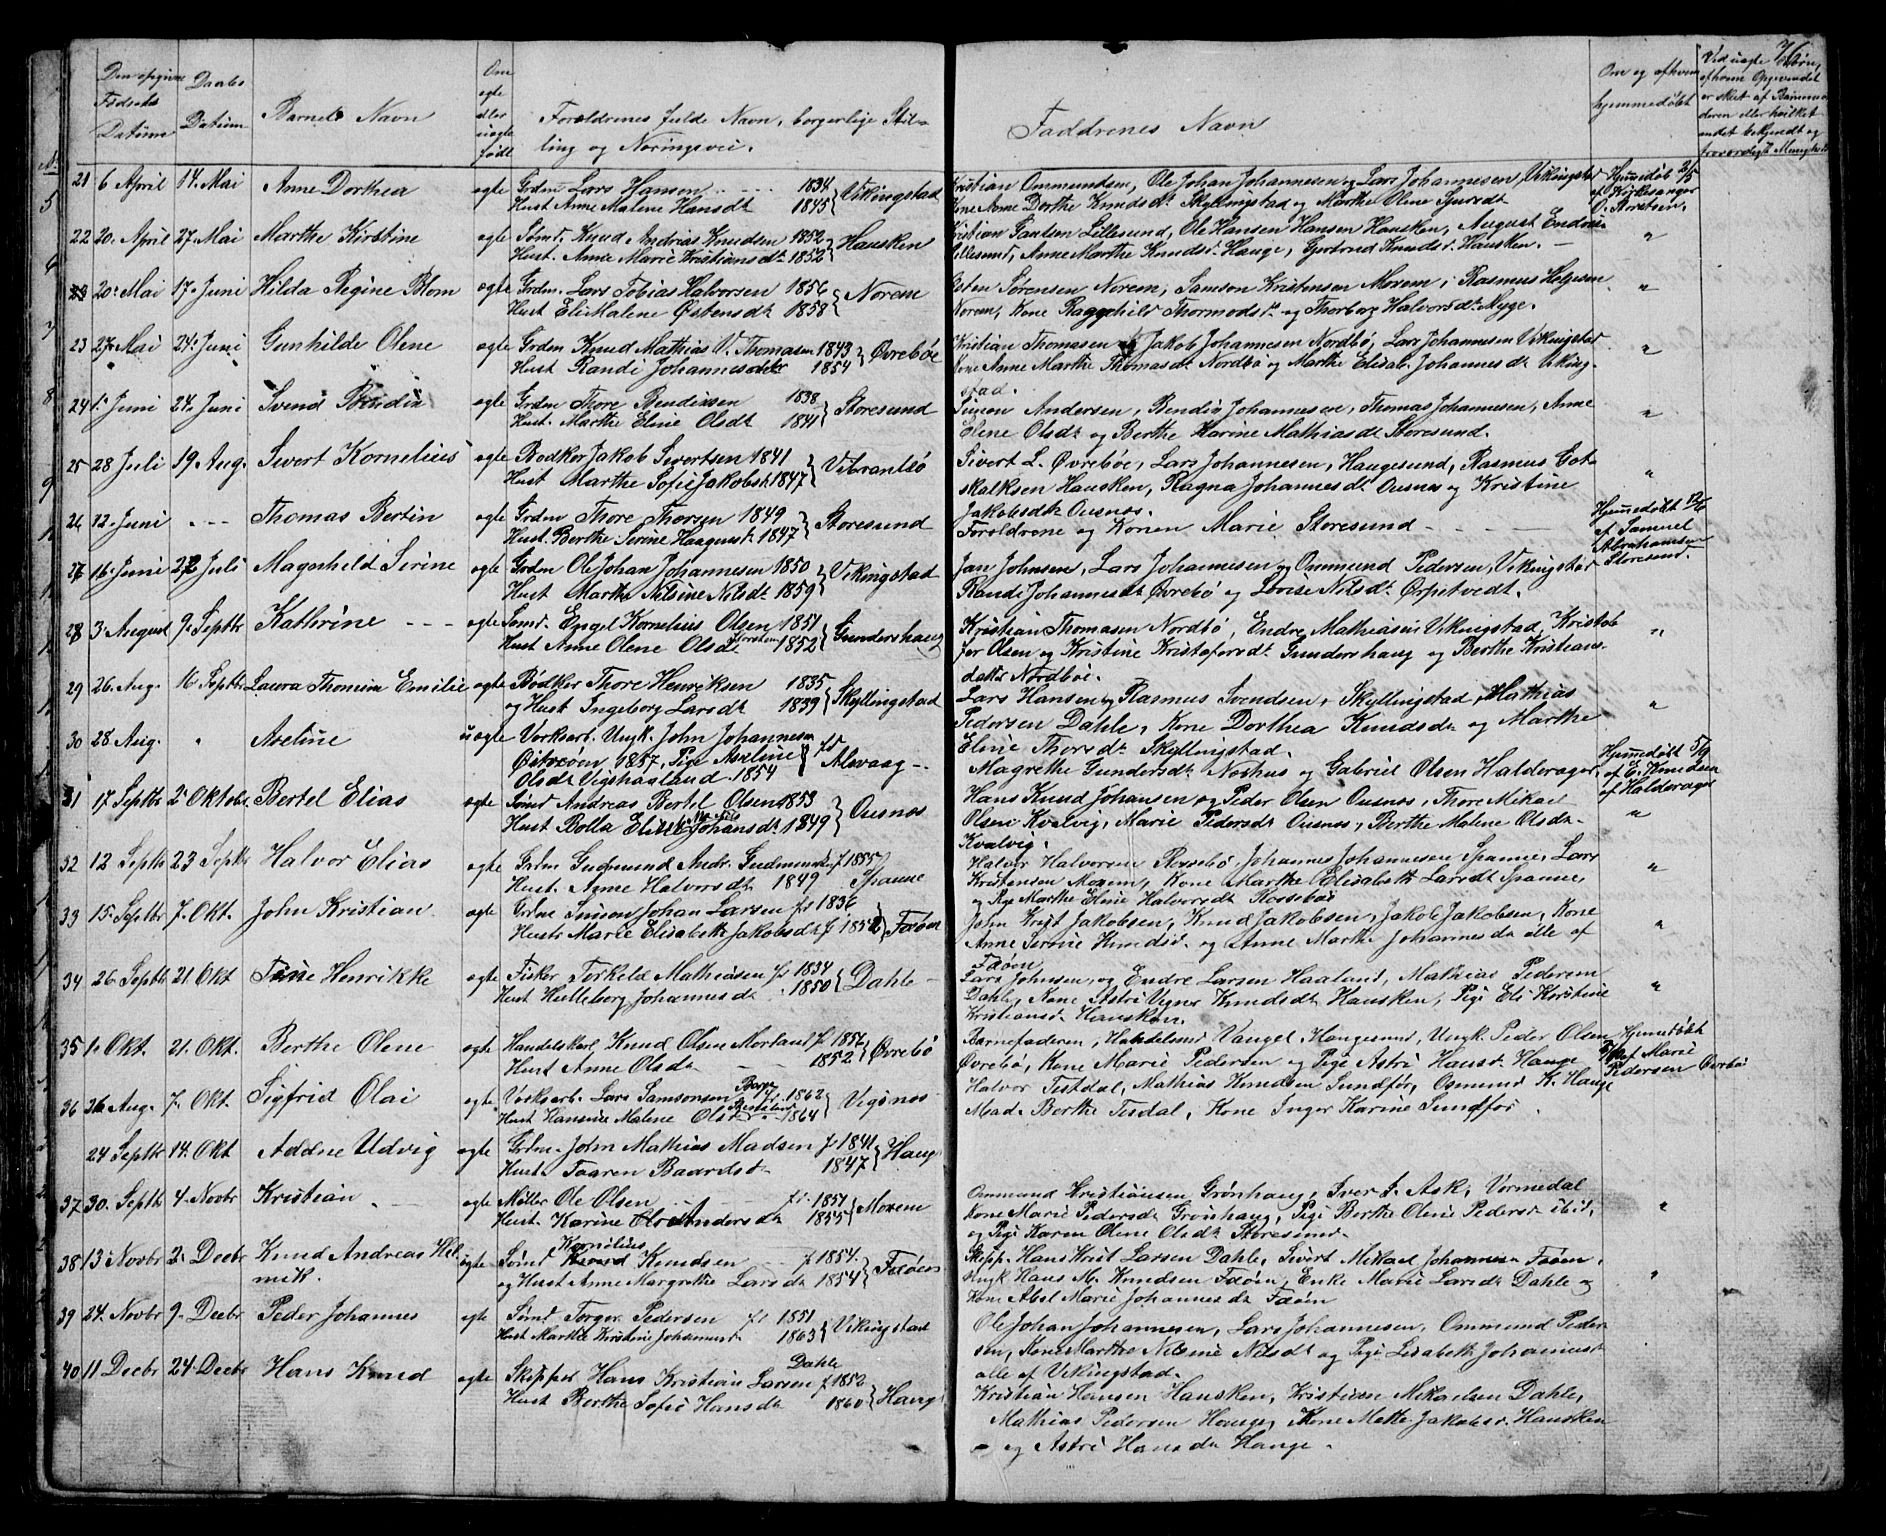 76
Den opgivne Fødsels Datum
Daabs Datum
Barnets Navn
Om ægte eller uægte født
Forældrenes fulde Navn, borgerlige Stilling og Næringsvei.
Faddrenes Navn
Om og af hvem hjemmedøbt
21 6 April 14. Mai Anne Dorthea ægte Grdm Lars Hansen 1834 Vikingstad
Hust Anne Malene Hansdt 1845
Kristian Ommundsen, Ole Johan Johannesen og Lars Johannesen, Vikingstad
Kone Anne Dorthe Knudsdt Skyllingstad og Marthe Olene
Hjemdøb 2/5
af Kirkesanger
22 20. April 27. Mai Marthe Kirstine ægte Sømd. Knud Andrias Knudsen 1852 Hausken
Hust. Anne Marie Kristiansdt 1852
Kristian Lillesund, Ole Hansen Hansen Hausken, August
Lillesund, Anne Marthe Knudsdt Hauge, Gjertrud Knudsdt Hausken. "
20. Mai 17. Juni Hilda Regine Blom ægte Grdm. Lars Tobias Halvorsen 1856 Norem
Hust Eli Malene Østensdt 1858
Østen Sørensen Norem, Samson Kristensen Moxem, Rasmus Helgesen
Norem, Kone Ragnhild Thormodsdt og Thorborg Halvorsdt Myge. "
23 27. Mai 24. Juni Gunhilde Olene ægte Grdm Knud Mathias V. Thomasen 1843 Øvrebøe
Hust Randi Johannesdtr 1854
Kristian Thomasen og Jakob Johannesen Nordbø, Lars Johannesen Vikingstad
Kone Anne Marthe Thomasdt Nordbø og Marthe Elisab. Johannesdt Viking-
stad. "
24 1. Juni 24. Juni Svend Bendix ægte Grdm Thore Bendixsen 1838 Storesund
Hust. Marthe Eline Olsdt 1841
Simon Andersen, Bendix Johannesen, Thomas Johannesen, Anne
Elene Olsdt og Berthe Karine Mathiasdt Storesund. "
25 28 Juli 19. Aug. Sivert Kornelius ægte Bødker Jakob Sivertsen 1841 Vibrandsø
Hust Marthe Sofie Jakobsdt 1847
Sivert L. Øvrebøe, Lars Johannesen, Haugesund, Rasmus Got-
skalksen Hausken, Ragna Johannesdt Ousnes og Kristine
Jakobsdt Ousnes. "
26 12. Juni - - - Thomas Bertin ægte Grdm Thore Thorsen 1849 Storesund
Hust. Berthe Serine Haagensdt 1847
Forældrene og Konen Marie Storesund
Hjemedøbt 12/6
af Samuel
Abrahamsen
Storesund.
27 16. Juni 22 Juli Magnhild Serine ægte Grdm Ole Johan Johannesen 1850 Vikingstad
Hust Marthe Nilsine Nilsdt 1859
Jan Johnsen, Lars Johannesen og Ommund Pedersen, Vikingstad
Randi Johannesdt Øvrebø og Lovise Nilsdt Ørpetvedt.
28 3. August 9. Septbr Kathrine - - - ægte Sømd. Engel Kornelius Olsen 1851 Gundershaug
Hust Anne Olene Olsdt 1852
Kristian Thomasen Nordbø, Endre Mathiasen Vikingstad, Kristof-
fer Olsen og Kristine Kristofersdt Gundershaug og Berthe Kristians-
datter Nordbøe. "
29 26. Aug. 16 Septbr Laura Thomine Emilie ægte Bødker Thore Henriksen 1835 Skyllingstad
og Hust Ingeborg Larsdt 1839
Lars Hansen og Rasmus Svendsen, Skyllingstad, Mathias
Pedersen Dahle, Kone Dorthea Knudsdt og Marthe
Eline Thorsdt Skyllingstad. "
30 28 Aug. " Axeline uægte Verksarb. Ungk. John Johannesen fd Alvaag
Østreøen 1857, Pige Axeline
Olsdt Vigshaaland 1854
Magrethe Gundersdt Norhus og Gabriel Olsen Halderager
Hjemedøbt 5/9
af E. Knudsen
af Halderager
31 17 Septbr 2. Oktobr Bertel Elias ægte Sømd Andreas Bertel Olsen 1853 Ousnes
Hust Bolla Elise Johansdt 1849
Hans Knud Johansen og Peder Olsen Ousnes, Thore Mikael
Olsen Kvalvig, Marie Pedersdt Ousnes, Berthe Malene Olsdt
Kvalvig. "
32 12 Septbr 23 Septbr Halvor Elias ægte Grdm Gudmund Andr. Gudmunds. f 1855 Spanne
Hust. Anne Halvorsdt 1849
Halvor Halvorsen Rossebø, Johannes Johannesen Spanne, Lars
Kristensen Moxem, Kone Marthe Elisabeth Larsdt Spanne,
og Pige Marthe Eline Halvorsdt Rossebøe "
33 15. Septbr 7. Okt. John Kristian ægte Grdm Simon Johan Larsen fd 1836 Fæøen
Hustr Marie Elisabeth Jakobsdt f 1852
John Krist Jakobsen, Knud Jakobsen, Jakob Jakobsen, Kone
Anne Serine Knudsdt og Anne Marthe Johannesdt alle af
Fæøen "
34 26. Septbr 21. Okt Tine Henrikke ægte Fisker Terkeld Mathiasen fd 1834 Dahle
Hust Helleborg Johannesdt 1850
Lars Johnsen, og Endre Larsen Haaland, Mathias Pedersen
Dahle, Kone Astri Vigne Knudsdt Hausken, Pige Eli Kirstine
Kristiansdt Hausken. "
35 1. Okt. 21. Okt. Berthe Olene ægte Handelskarl Knud Olsen Morland f 1856 Øvrebø
Hust Anne Olsdt 1852
Barnefaderen, Handelsmd Vangel, Haugesund, Ungk. Peder Olsen
Øvrebø, Kone Marie Pedersen og Pige Astri Hansdt Hauge
Hjemdøbt
af Marie
Pedersen Øvrebø
36 26 Aug. 7. Okt. Sigfrid Olai ægte Verksarb. Lars Samsonsen 1862 Vigsnes
Hust Hansine Malene Olsdt 1864
Halvor Tisdal, Mathias Knudsen Sundfør, Osmund K. Hauge
Mad. Berthe Tisdal, Kone Inger Karine Sundfør
24 Septbr 14. Okt Addne Udvig ægte Grdm. John Mathias Madsen f 1841 Hauge
Hust. Taaren Baardsd 1847
37 30. Septbr 4. Novbr Kristian ægte Møller Ole Olsen f. 1851 Moxem
Hust. Karine Andersdt 1855
Ommund Kristiansen Grønhaug, Iver J. Ask, Vormedal
Kone Marie Pedersdt Grønhaug, Pige Berthe Olene Pedersdt ibid,
og Pige Karen Olene Olsdt Storesund. "
38 13 Novbr 2. Decbr Knud Andreas Hel-
mik. ægte Sømd Kornelius Knudsen f 1854. Fæøen
og Hust Anne Margrethe Larsdt 1854
Skipp. Hans Krist Larsen Dahle, Sivert Mikael Johannesen Fæøen,
Ungk Hans M. Knudsen Fæøen, Enke Marie Larsdt Dahle og
Kone Abel Marie Johannesdt Fæøen "
39 24. Novbr 9. Decbr Peder Johannes ægte Sømd Torger Pedersen fd 1851 Vikingstad
Hust Marthe Kristine Johannesdt 1863
Ole Johan Johannesen, Lars Johannesen, Ommund Peder-
sen, Kone Marthe Nilsine Nilsdt og Pige Lisabeth Johannesdt
alle af Vikingstad.
40 11 Decbr 24. Decbr Hans Knud ægte Skipper Hans Kristian Larsen Dahle f 1852 Hauge
Hust Berthe Sofie Hansdt 1860
Kristian Hansen Hausken, Kristian Mikaelsen Dahle,
Mathias Pedersen Hauge, Kone Mette Jakobsdt Hausken
og Astri Hansdt Hauge.